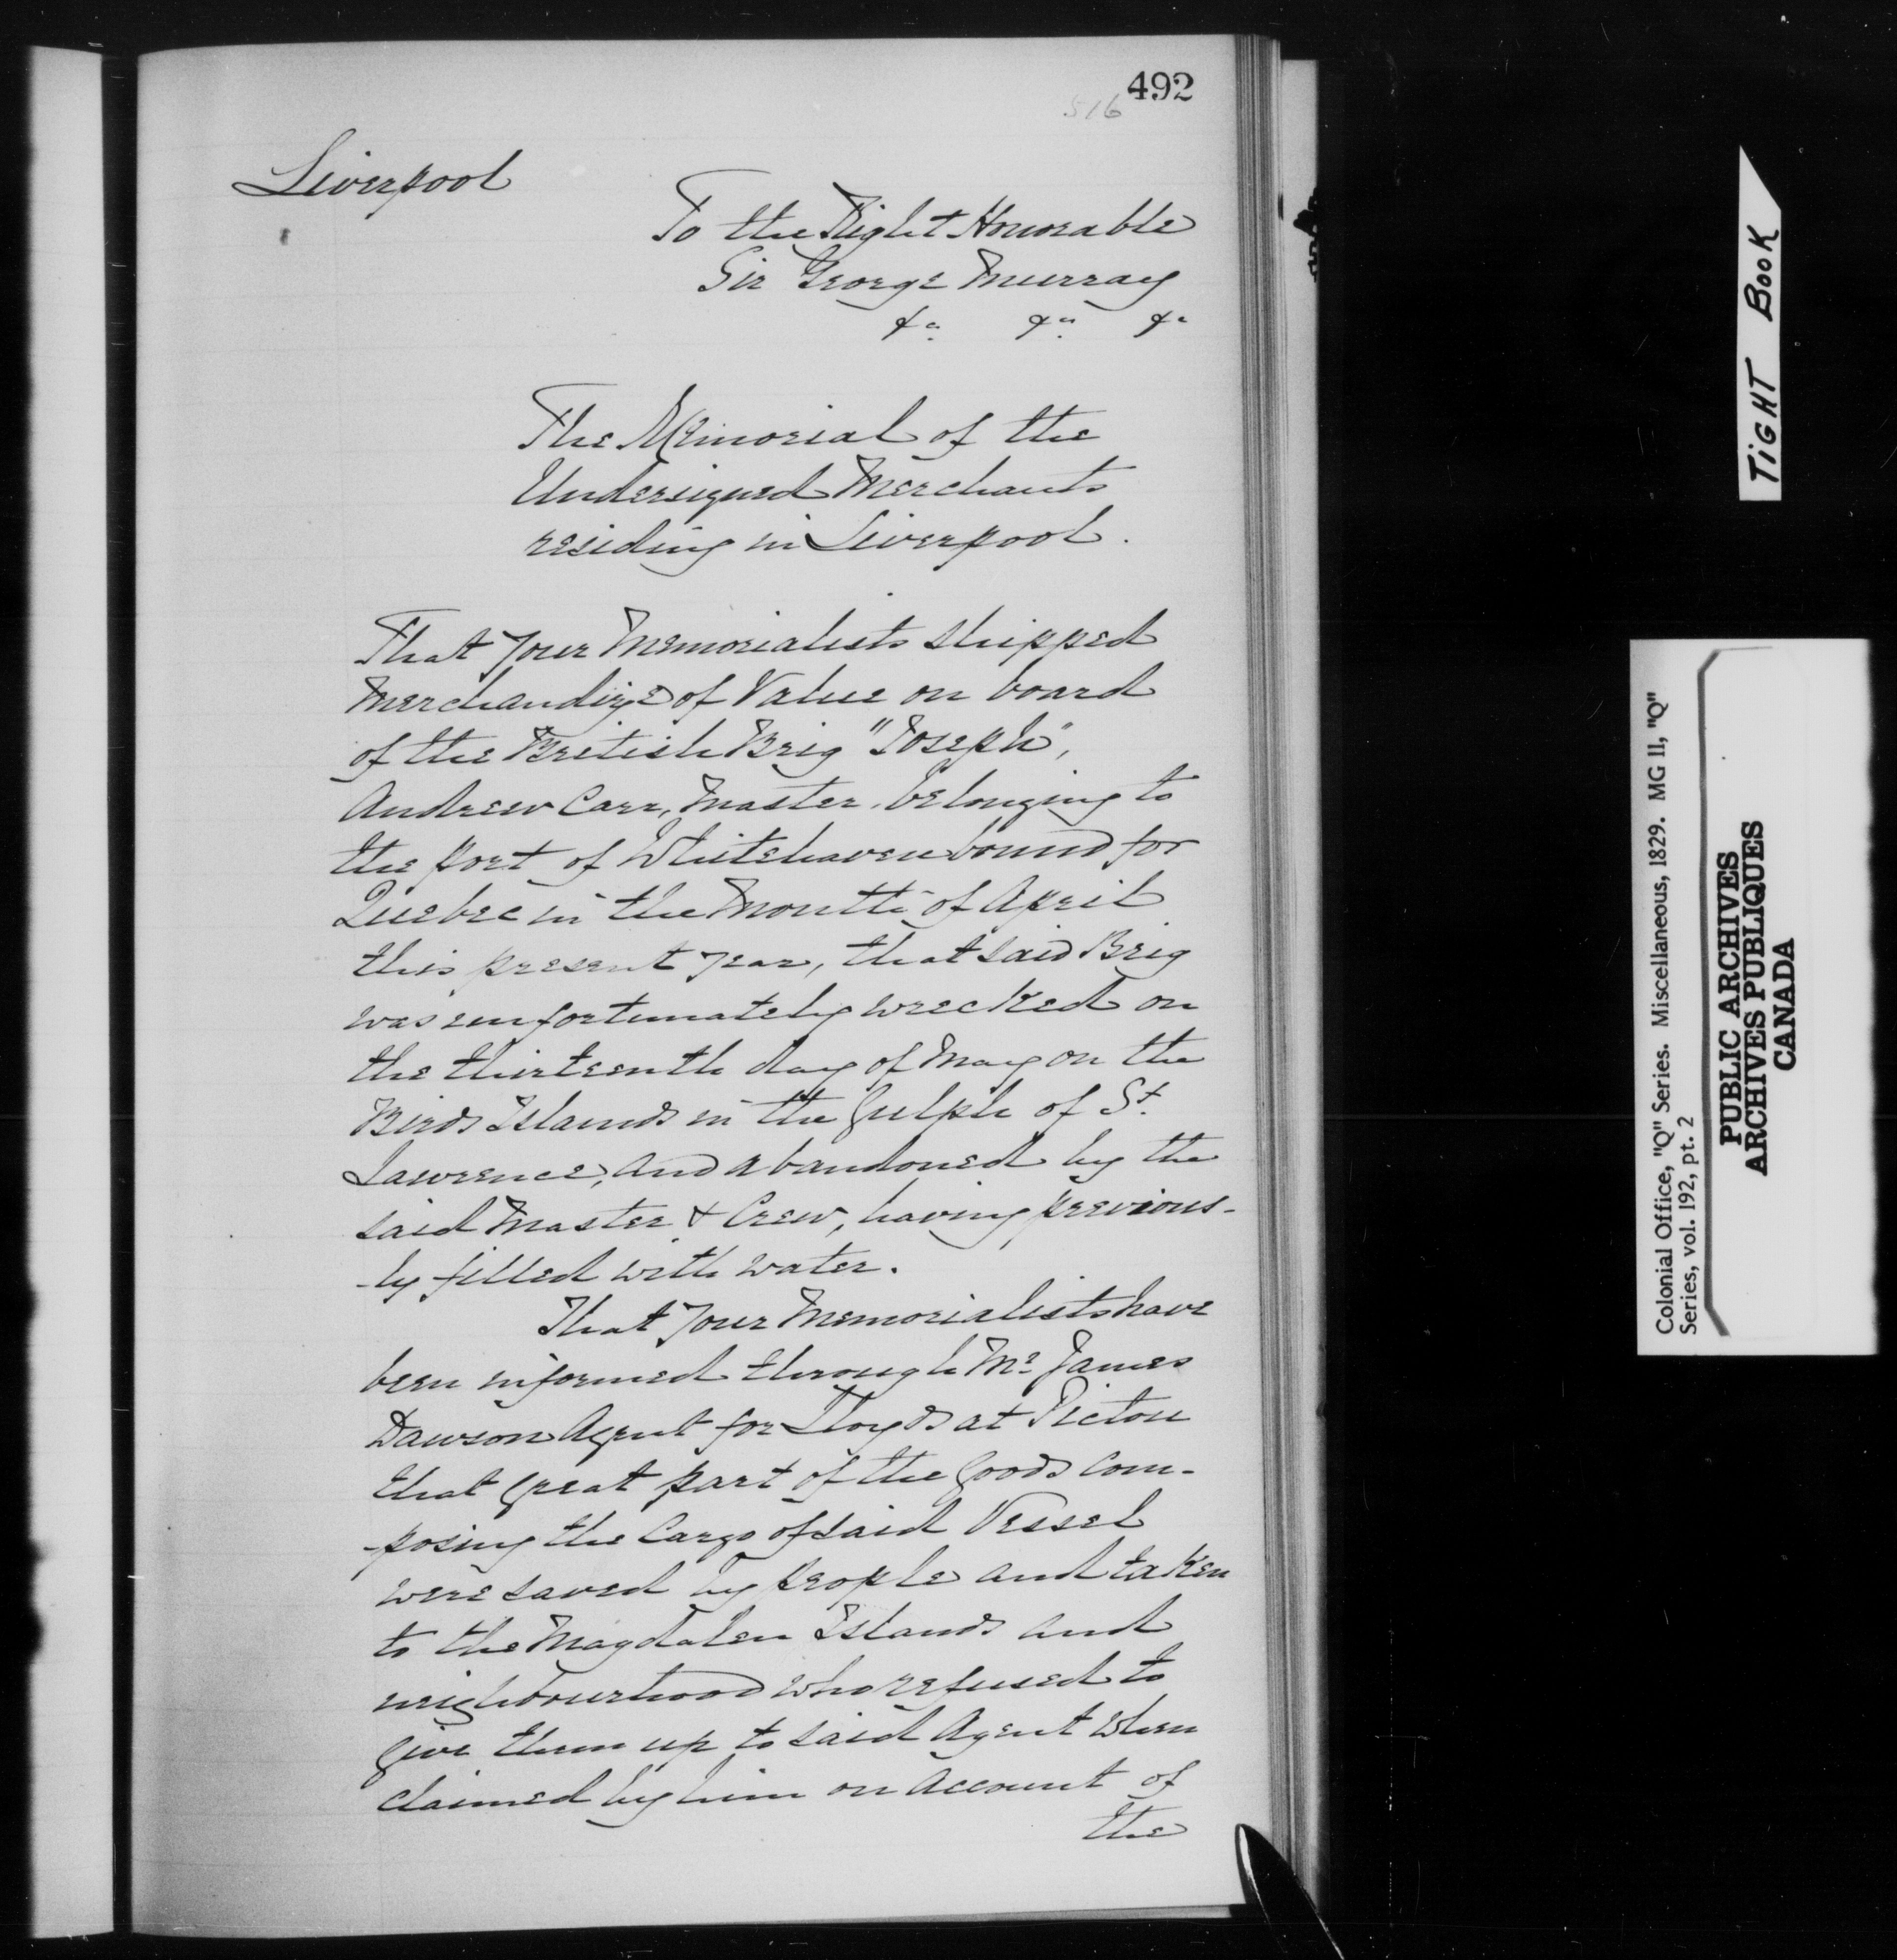 492
516
Liverpool
To the Right Honorable
Sir George Murray
&a. &a. &a
The Memorial of the
Undersigned Merchants
residing in Liverpool.
That Your Memorialists shipped
Merchandize of Value on board
of the British Brig "Joseph",
Andrew Carr, Master, belonging to
the port of Whitehaven bound for
Quebec in the Month of April
this present year, that said Brig
was unfortunately wrecked on
the thirteenth day of May on the
Birds Islands in the Gulph of St.
Lawrence, and abandoned by the
said Master & Crew, having previous-
-ly filled with water.
That Your Memorialists have
been informed through Mr James
Dawson Agent for Lloyds at Pictou
that great part of the Goods com-
-posing the Cargo of said Vessel
were saved by people and taken
to the Magdalen Islands and
neighbourhood who refused to
give them up to said Agent when
claimed by him on account of
the
TIGHT BOOK
Colonial Office, "Q" Series. Miscellaneous, 1829. MG 11, "Q"
Series, vol. 192, pt. 2
PUBLIC ARCHIVES
ARCHIVES PUBLIQUES
CANADA